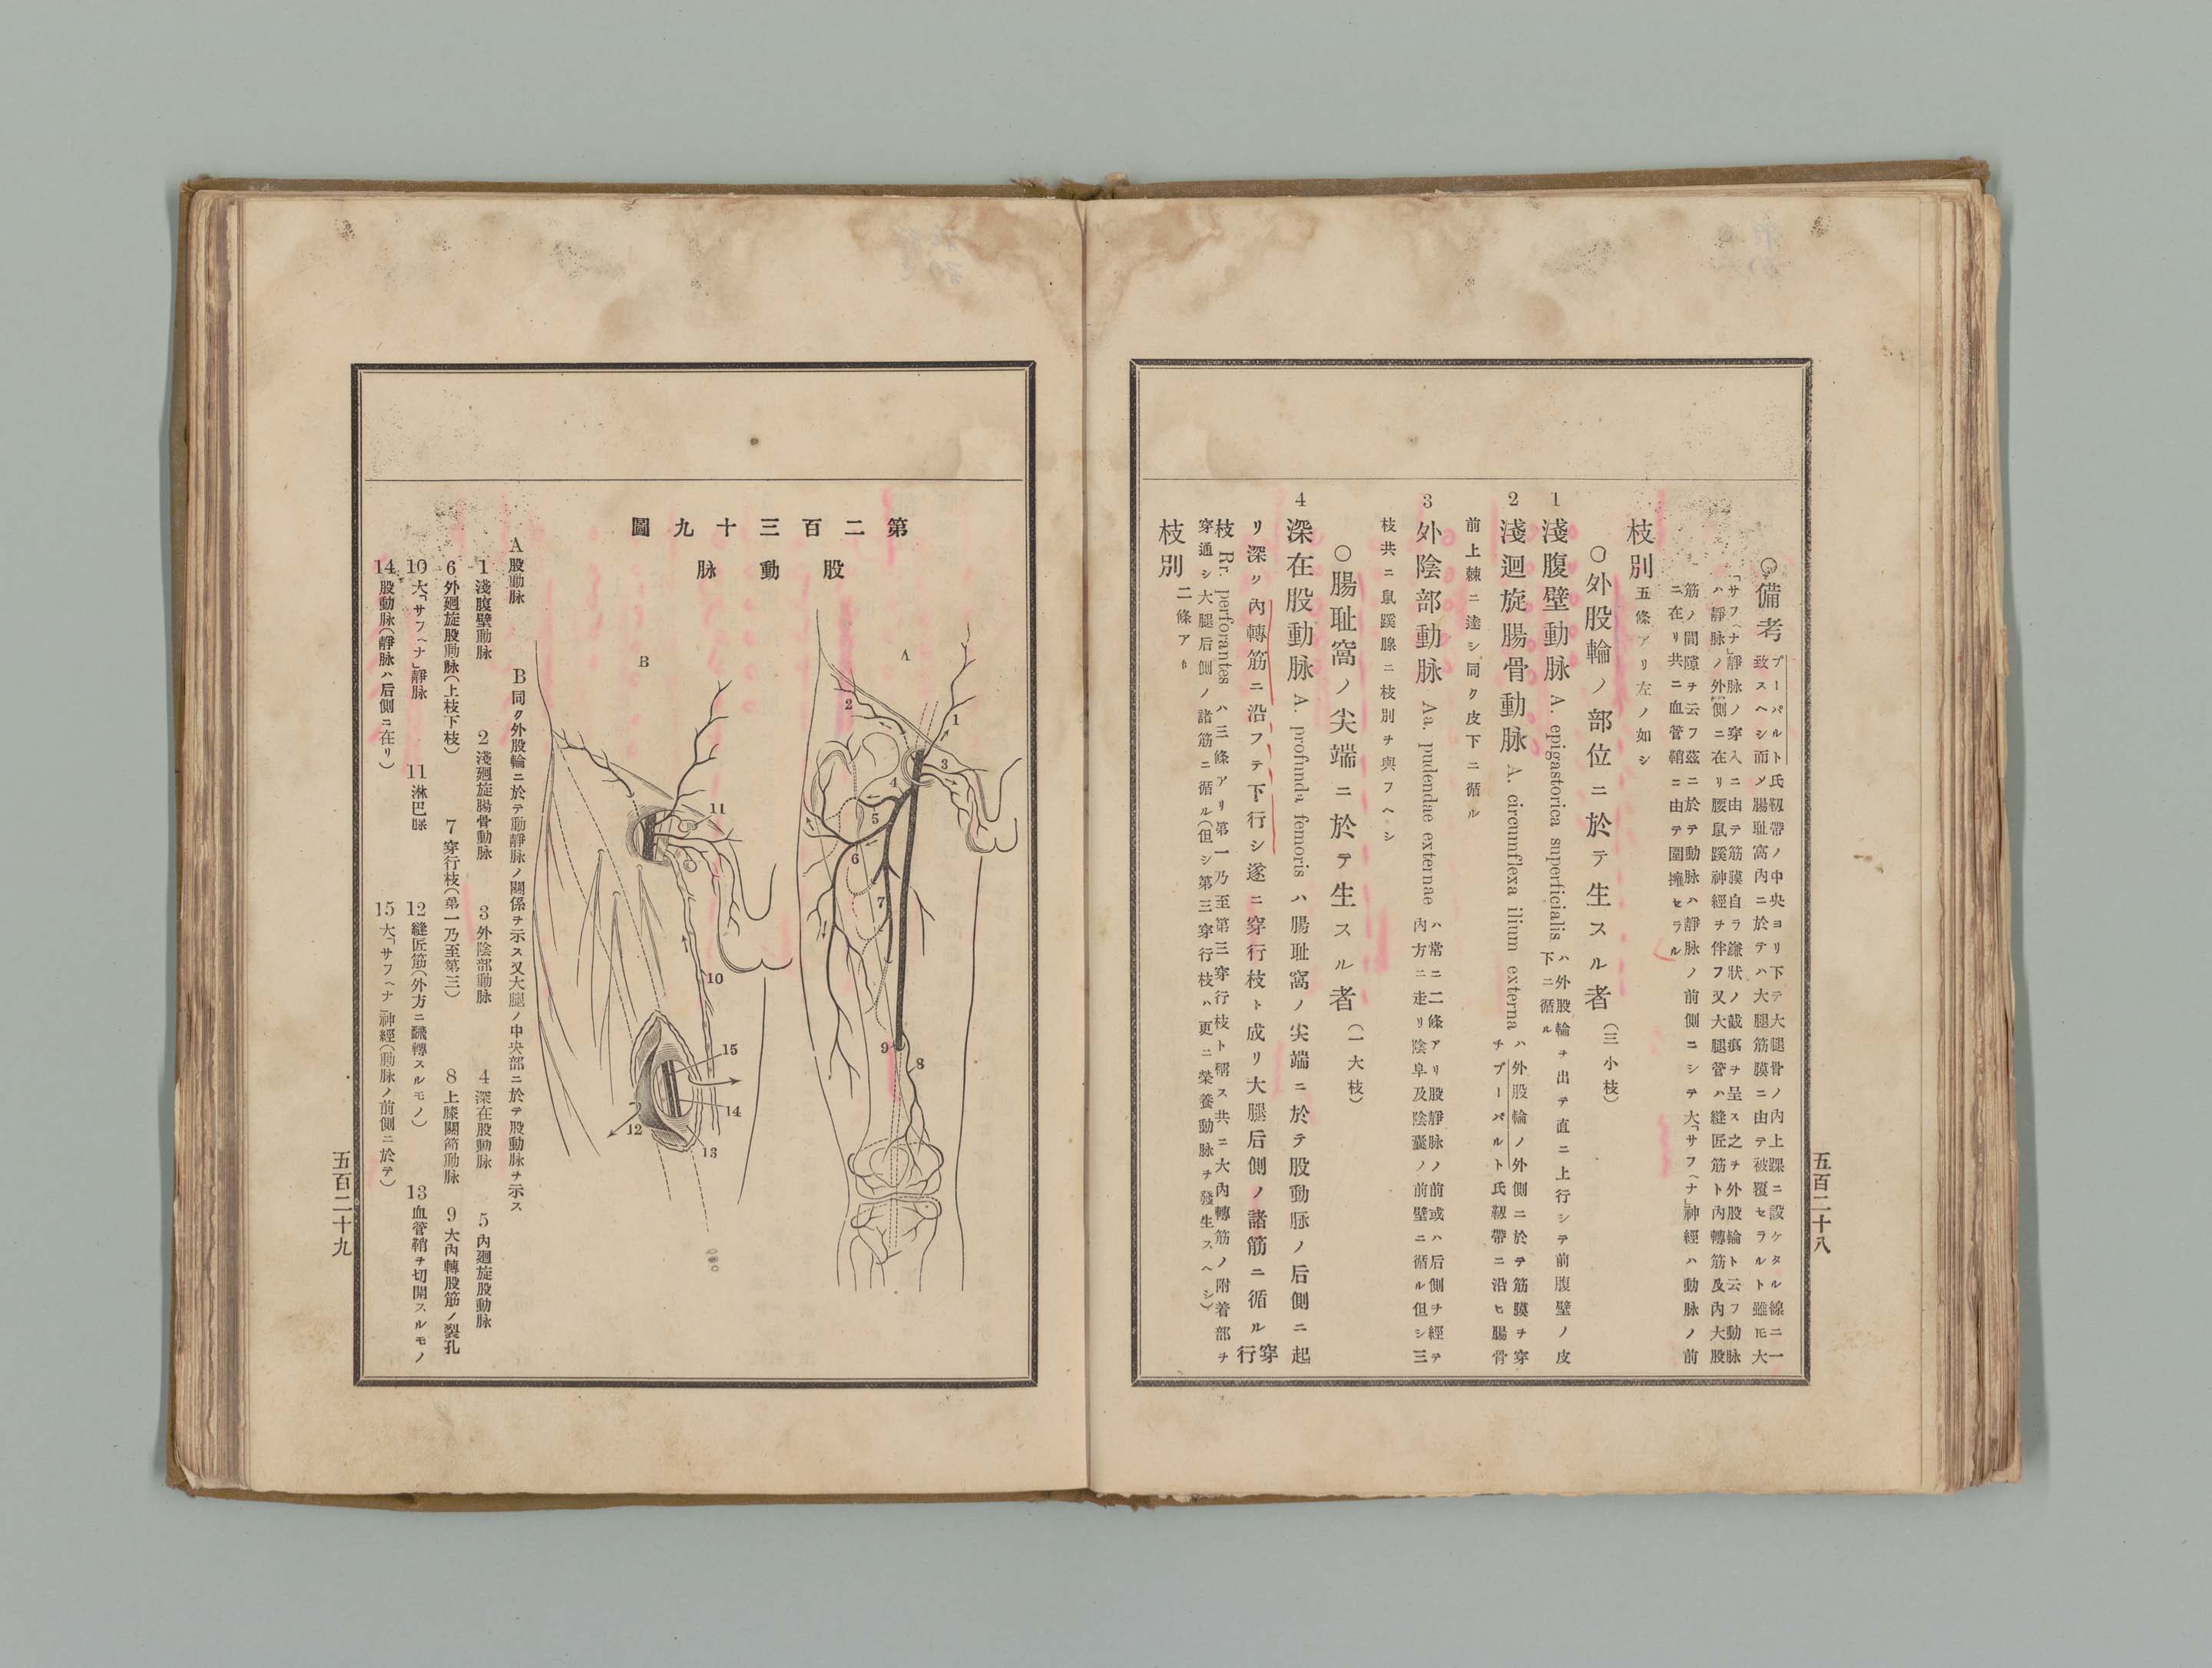 〇備考 プーパルト氏靱帶ノ中央ヨリ下テ大腿骨ノ內上踝ニ設ケタル線ニ一
致スヘシ而ノ腸耻窩內ニ於テハ大腿筋膜ニ由テ被覆セラルト雖𪜈大
「サフヘナ」靜脉ノ穿入ニ由テ筋膜自ラ鎌狀ノ截痕チ呈ス之チ外股輪ト云フ動脉
ハ靜脉ノ外側ニ在リ腰鼠蹊神經チ伴フ又大腿管ハ縫匠筋ト內轉筋及內大股
筋ノ間隙チ云フ茲ニ於テ動脉ハ靜脉ノ前側ニシテ大「サフヘナ」神經ハ動脉ノ前
ニ在リ共ニ血管鞘ニ由テ圍擁セラル
枝別 五條アリ左ノ如シ
〇外股輪ノ部位ニ於テ生スル者(三小枝)
1 淺腹壁動脉 A. epigastorica superficialis ハ外股輪チ出テ直ニ上行シテ前腹壁ノ皮
下ニ循ル
2 淺迴旋腸骨動脉 A. circumflexa ilium externa ハ外股輪ノ外側ニ於テ筋膜チ穿
チプーパルト氏靱帶ニ沿ヒ腸骨
前上棘ニ達シ同ク皮下ニ循ル
3 外陰部動脉 Aa. pudendae externae ハ常ニ二條アリ股靜脉ノ前或ハ后側チ經テ
內方ニ走リ陰阜及陰囊ノ前壁ニ循ル但シ三
枝共ニ鼠蹊腺ニ枝別チ與フヘシ
〇腸耻窩ノ尖端ニ於テ生スル者(一大枝)
4 深在股動脉 A. profunda femoris ハ腸耻窩ノ尖端ニ於テ股動脉ノ后側ニ起
リ深ク內轉筋ニ沿フテ下行シ遂ニ穿行枝ト成リ大腿后側ノ諸筋ニ循ル穿行
枝 Rr. perforantes ハ三條アリ第一乃至第三穿行枝ト稱ス共ニ大內轉筋ノ附着部チ
穿通シ大腿后側ノ諸筋ニ循ル(但シ第三穿行枝ハ更ニ榮養動脉チ發生スヘシ)
枝別 二條アリ
五百二十八
第二百三十九圖
股動脉
A
1
2
3
4
5
6
7
8
9
B
10
11
12
13
14
15
A 股動脉 B 同ク外股輪ニ於テ動靜脉ノ關係チ示ス又大腿ノ中央部ニ於テ股動脉チ示ス
1 淺腹壁動脉 2 淺廻旋腸骨動脉 3 外陰部動脉 4 深在股動脉 5 內廻旋股動脉
6 外廻旋股動脉(上枝下枝) 7 穿行枝(第一乃至第三) 8 上膝關節動脉 9 大內轉股筋ノ裂孔
10 大「サフヘナ」靜脉 11 淋巴腺 12 縫匠筋(外方ニ飜轉スルモノ) 13 血管鞘チ切開スルモノ
14 股動脉(靜脉ハ后側ニ在リ) 15 大「サフヘナ」神經(動脉ノ前側ニ於テ)
五百二十九